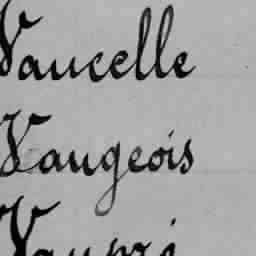 Vaucelle
Vaugeois